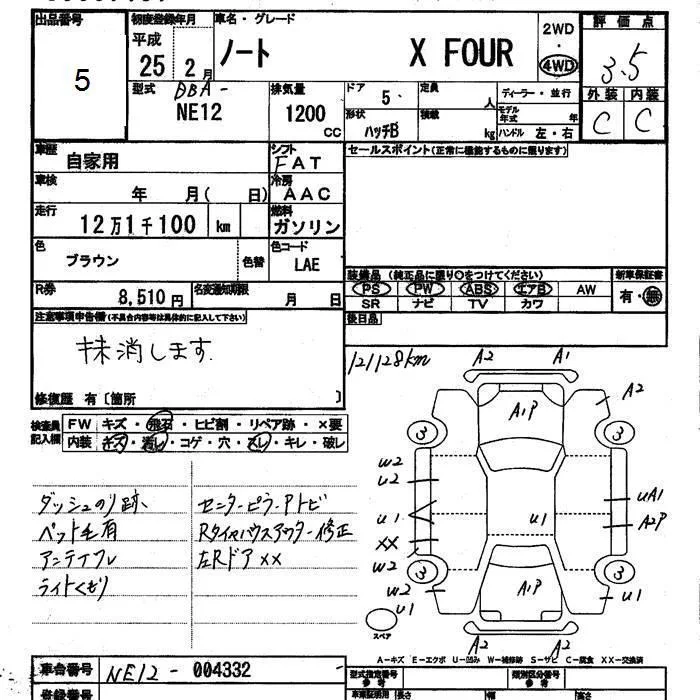 出品番号 初度登録年月 車名・グレード 2WD 評価点
5 平成 25 2月 ノート X FOUR ・ 4WD 3.5
型式 DBA- 排気量 ドア 5 定員 人 ディーラー・並行 外装 内装
NE12 1200 cc 形状 ハッチB 積載 kg モデル年式 年 ハンドル 左・右 C C
車歴 自家用 シフト FAT セールスポイント(正常に機能するものに限ります)
車検 年 月( 日) 冷房 AAC
走行 12万1千100 km 燃料 ガソリン
色 ブラウン 色替 色コード LAE
装備品 (純正品に限り○をつけてください) 新車保証書
R券 8,510円 名変通知期限 月 日 PS PW ABS エアB AW 有・無
SR ナビ TV カワ
注意事項申告欄(不具合内容等は具体的に記入して下さい) 後日品
抹消します
121128km
修復歴 有〔箇所 〕
検査員記入欄 FW キズ・飛石・ヒビ割・リペア跡・×要
内装 キズ・汚れ・コゲ・穴・スレ・キレ・破レ
ダッシュのり跡 センターピラーPトビ
ペット毛有 Rタイヤハウスアウター修正
アンテナフレ 左Rドア××
ライトくもり
A2 A1
A1P A2
3 3
W2
U2
U1 U1 UA1
A2P
XX
W2
3 3
W2 A1P U1
U1
スペア
A2 A2
A-キズ E-エクボ U-凹み W-補修跡 S-サビ C-腐食 XX-交換済
車台番号 NE12-004332 型式指定番号 参考 類別区分番号 参考
登録番号 長さ 幅 高さ